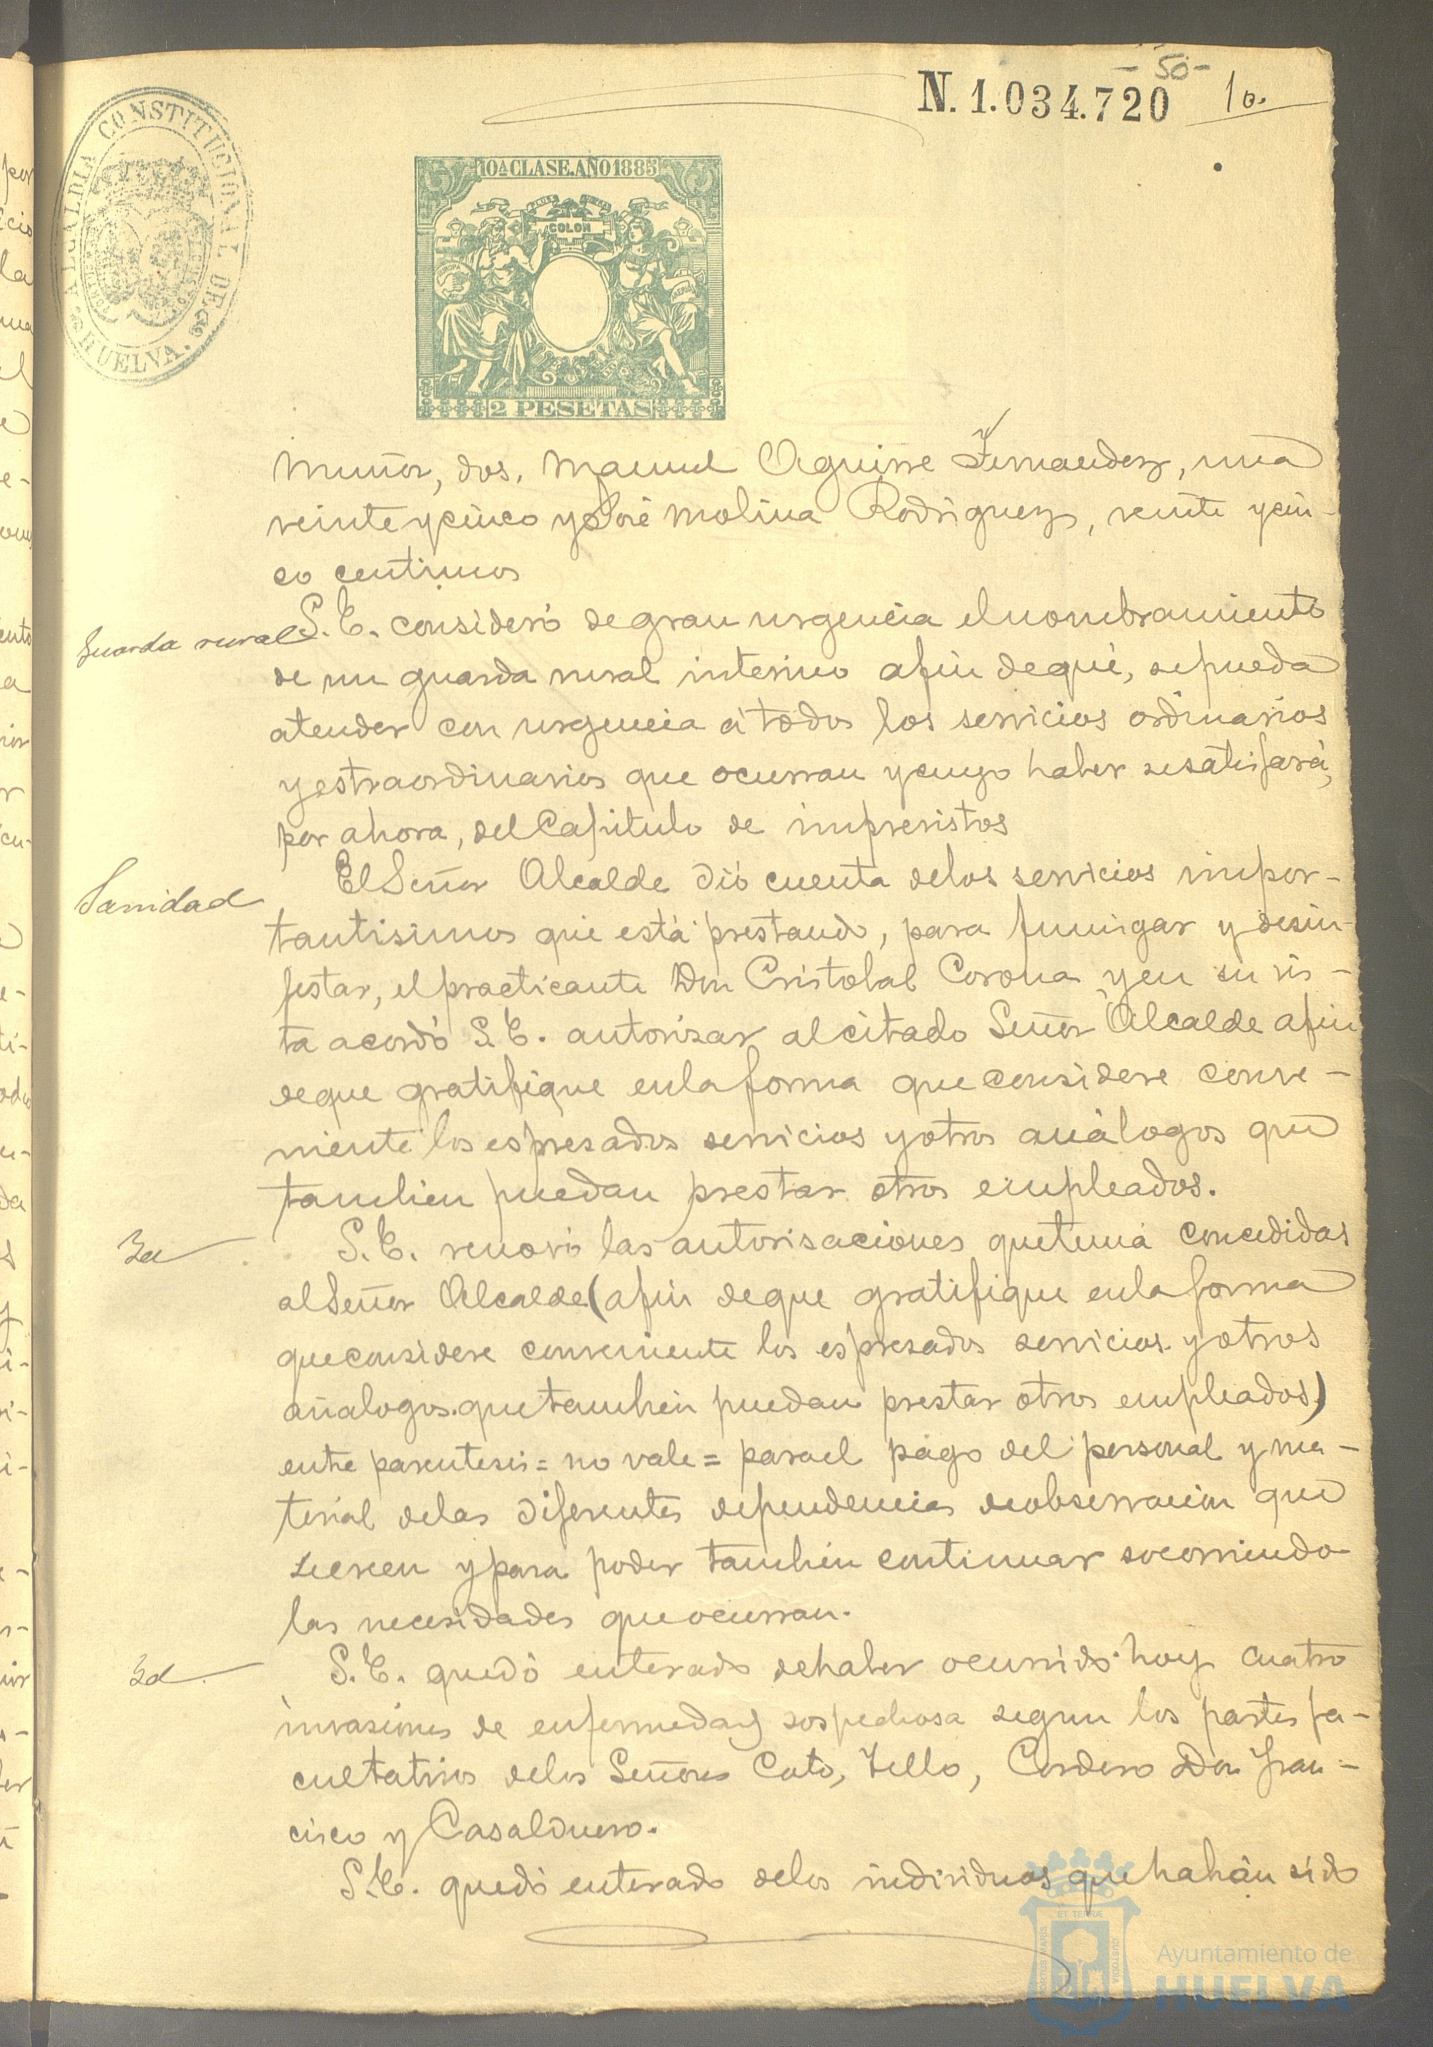 - 50 -
N. 1.034.720
10.
ALCALDIA CONSTITUCIONAL DE HUELVA.
10ª CLASE. AÑO 1885
COLON
2 PESETAS
Muñoz, dos. Manuel Aguirre Fernandez, una
veinte y cinco y José Molina Rodriguez, veinte y cin-
co centimos
Guarda rural
S. E. consideró de gran urgencia el nombramiento
de un guarda rural interino afin de que, se pueda
atender con urgencia á todos los servicios ordinarios
y estraordinarios que ocurran y cuyo haber se satisfará,
por ahora, del Capitulo de imprevistos
Sanidad
El Señor Alcalde dió cuenta de los servicios impor-
tantisimos que está prestando, para fumigar y desin-
festar, el practicante Don Cristobal Corona y en su vis-
ta acordó S. E. autorizar al citado Señor Alcalde afin
de que gratifique en la forma que considere conve-
niente los espresados servicios y otros análogos que
tambien puedan prestar otros empleados.
Id
S. E. renovó las autorisaciones que tenia concedidas
al Señor Alcalde (afin de que gratifique en la forma
que considere conveniente los espresados servicios y otros
análogos que tambien puedan prestar otros empleados)
entre parentesis = no vale = para el pago del personal y ma-
terial de las diferentes dependencias de observacion que
se creen y para poder tambien continuar socorriendo
las necesidades que ocurran.
Id
S. E. quedó enterado de haber ocurrido hoy cuatro
invasiones de enfermedad sospechosa segun los partes fa-
cultativos de los Señores Coto, Tello, Cordero Don Fran-
cisco y Casalduero.
S. E. quedó enterado de los individuos que habán sido
Ayuntamiento de
HUELVA